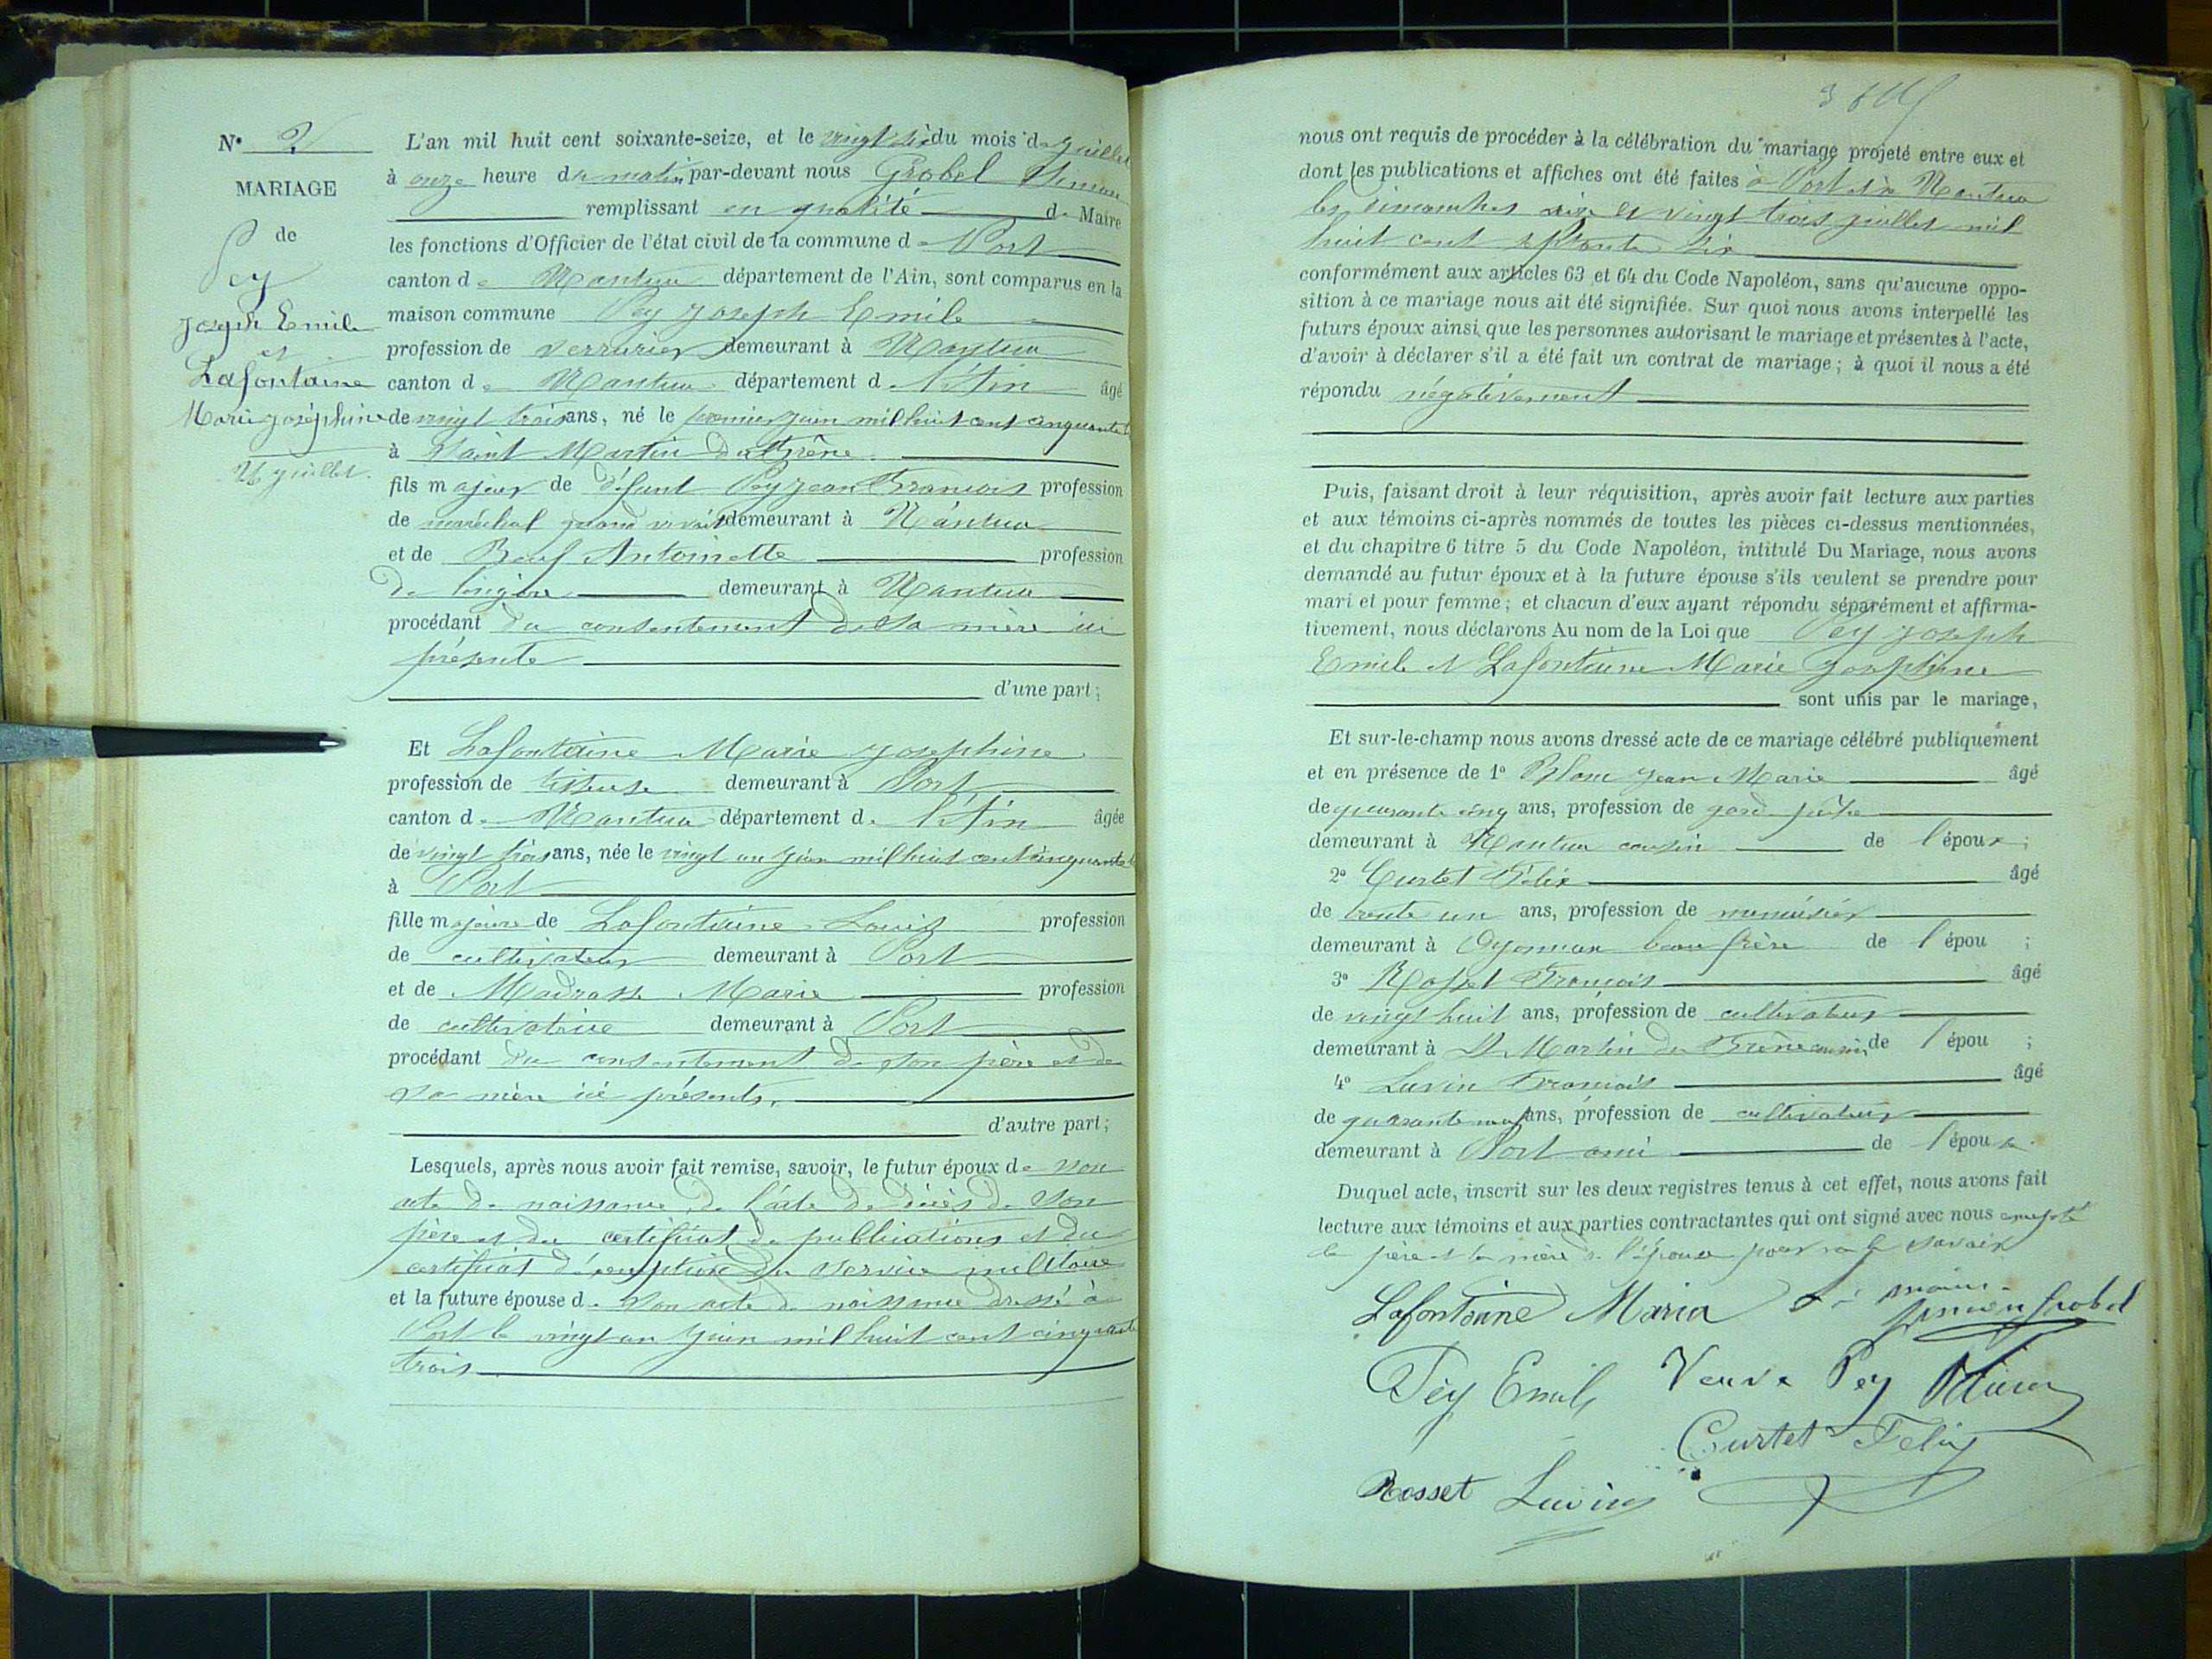 N° 2
MARIAGE
de
Pey
Joseph Emile
et
Lafontaine
Marie Joséphine
26 juillet.
L'an mil huit cent soixante-seize, et le vingt six du mois de Juillet
à onze heure du matin par-devant nous Grobel Simeon
remplissant en qualité de Maire
les fonctions d'Officier de l'état civil de la commune de Port
canton de Nantua département de l'Ain, sont comparus en la
maison commune Pey Joseph Emile
profession de serrurier demeurant à Nantua
canton de Nantua département de l'Ain âgé
de vingt trois ans, né le premier juin mil huit cent cinquante
à Saint Martin du Frêne
fils majeur de défunt Pey Jean François profession
de maréchal quand vivait demeurant à Nantua
et de Beuf Antoinette profession
de lingère demeurant à Nantua
procédant du consentement de sa mère ici
présente
d'une part;
Et Lafontaine Marie Josephine
profession de tisseuse demeurant à Port
canton de Nantua département de l'Ain âgée
de vingt trois ans, née le vingt un juin mil huit cent cinquante
à Port
fille majeure de Lafontaine Louis profession
de cultivateur demeurant à Port
et de Madrasse Marie profession
de cultivatrice demeurant à Port
procédant du consentement de son père et de
sa mère ici présents.
d'autre part;
Lesquels, après nous avoir fait remise, savoir, le futur époux de son
acte de naissance, de l'acte de décès de son
père et du certificat de publications et du
certificat d'exemption du service militaire
et la future épouse de son acte de naissance dressé à
Port le vingt un juin mil huit cent cinquante
trois
nous ont requis de procéder à la célébration du mariage projeté entre eux et
dont les publications et affiches ont été faites à Port et à Nantua
les dimanches seize et vingt trois juillet mil
huit cent septante six
conformément aux articles 63 et 64 du Code Napoléon, sans qu'aucune oppo-
sition à ce mariage nous ait été signifiée. Sur quoi nous avons interpellé les
futurs époux ainsi que les personnes autorisant le mariage et présentes à l'acte,
d'avoir à déclarer s'il a été fait un contrat de mariage; à quoi il nous a été
répondu négativement
Puis, faisant droit à leur réquisition, après avoir fait lecture aux parties
et aux témoins ci-après nommés de toutes les pièces ci-dessus mentionnées,
et du chapitre 6 titre 5 du Code Napoléon, intitulé Du Mariage, nous avons
demandé au futur époux et à la future épouse s'ils veulent se prendre pour
mari et pour femme; et chacun d'eux ayant répondu séparément et affirma-
tivement, nous déclarons Au nom de la Loi que Pey Joseph
Emile et Lafontaine Marie Josephine
sont unis par le mariage,
Et sur-le-champ nous avons dressé acte de ce mariage célébré publiquement
et en présence de 1° Blanc Jean Marie âgé
de quarante cinq ans, profession de
demeurant à Nantua cousin de l'époux;
2° Curtet Félix âgé
de trente un ans, profession de menuisier
demeurant à Oyonnax beau frère de l'épou ;
3° Rosset François âgé
de vingt huit ans, profession de cultivateur
demeurant à St Martin du Frêne cousin de l'épou ;
4° Luvin François âgé
de quarante neuf ans, profession de cultivateur
demeurant à Port ami de l'époux.
Duquel acte, inscrit sur les deux registres tenus à cet effet, nous avons fait
lecture aux témoins et aux parties contractantes qui ont signé avec nous excepté
le père et la mère de l'épouse pour ne le savoir
Lafontaine Maria
Simeon Grobel
Pey Emile Veuve Pey
Curtet Felix
Rosset Luvin